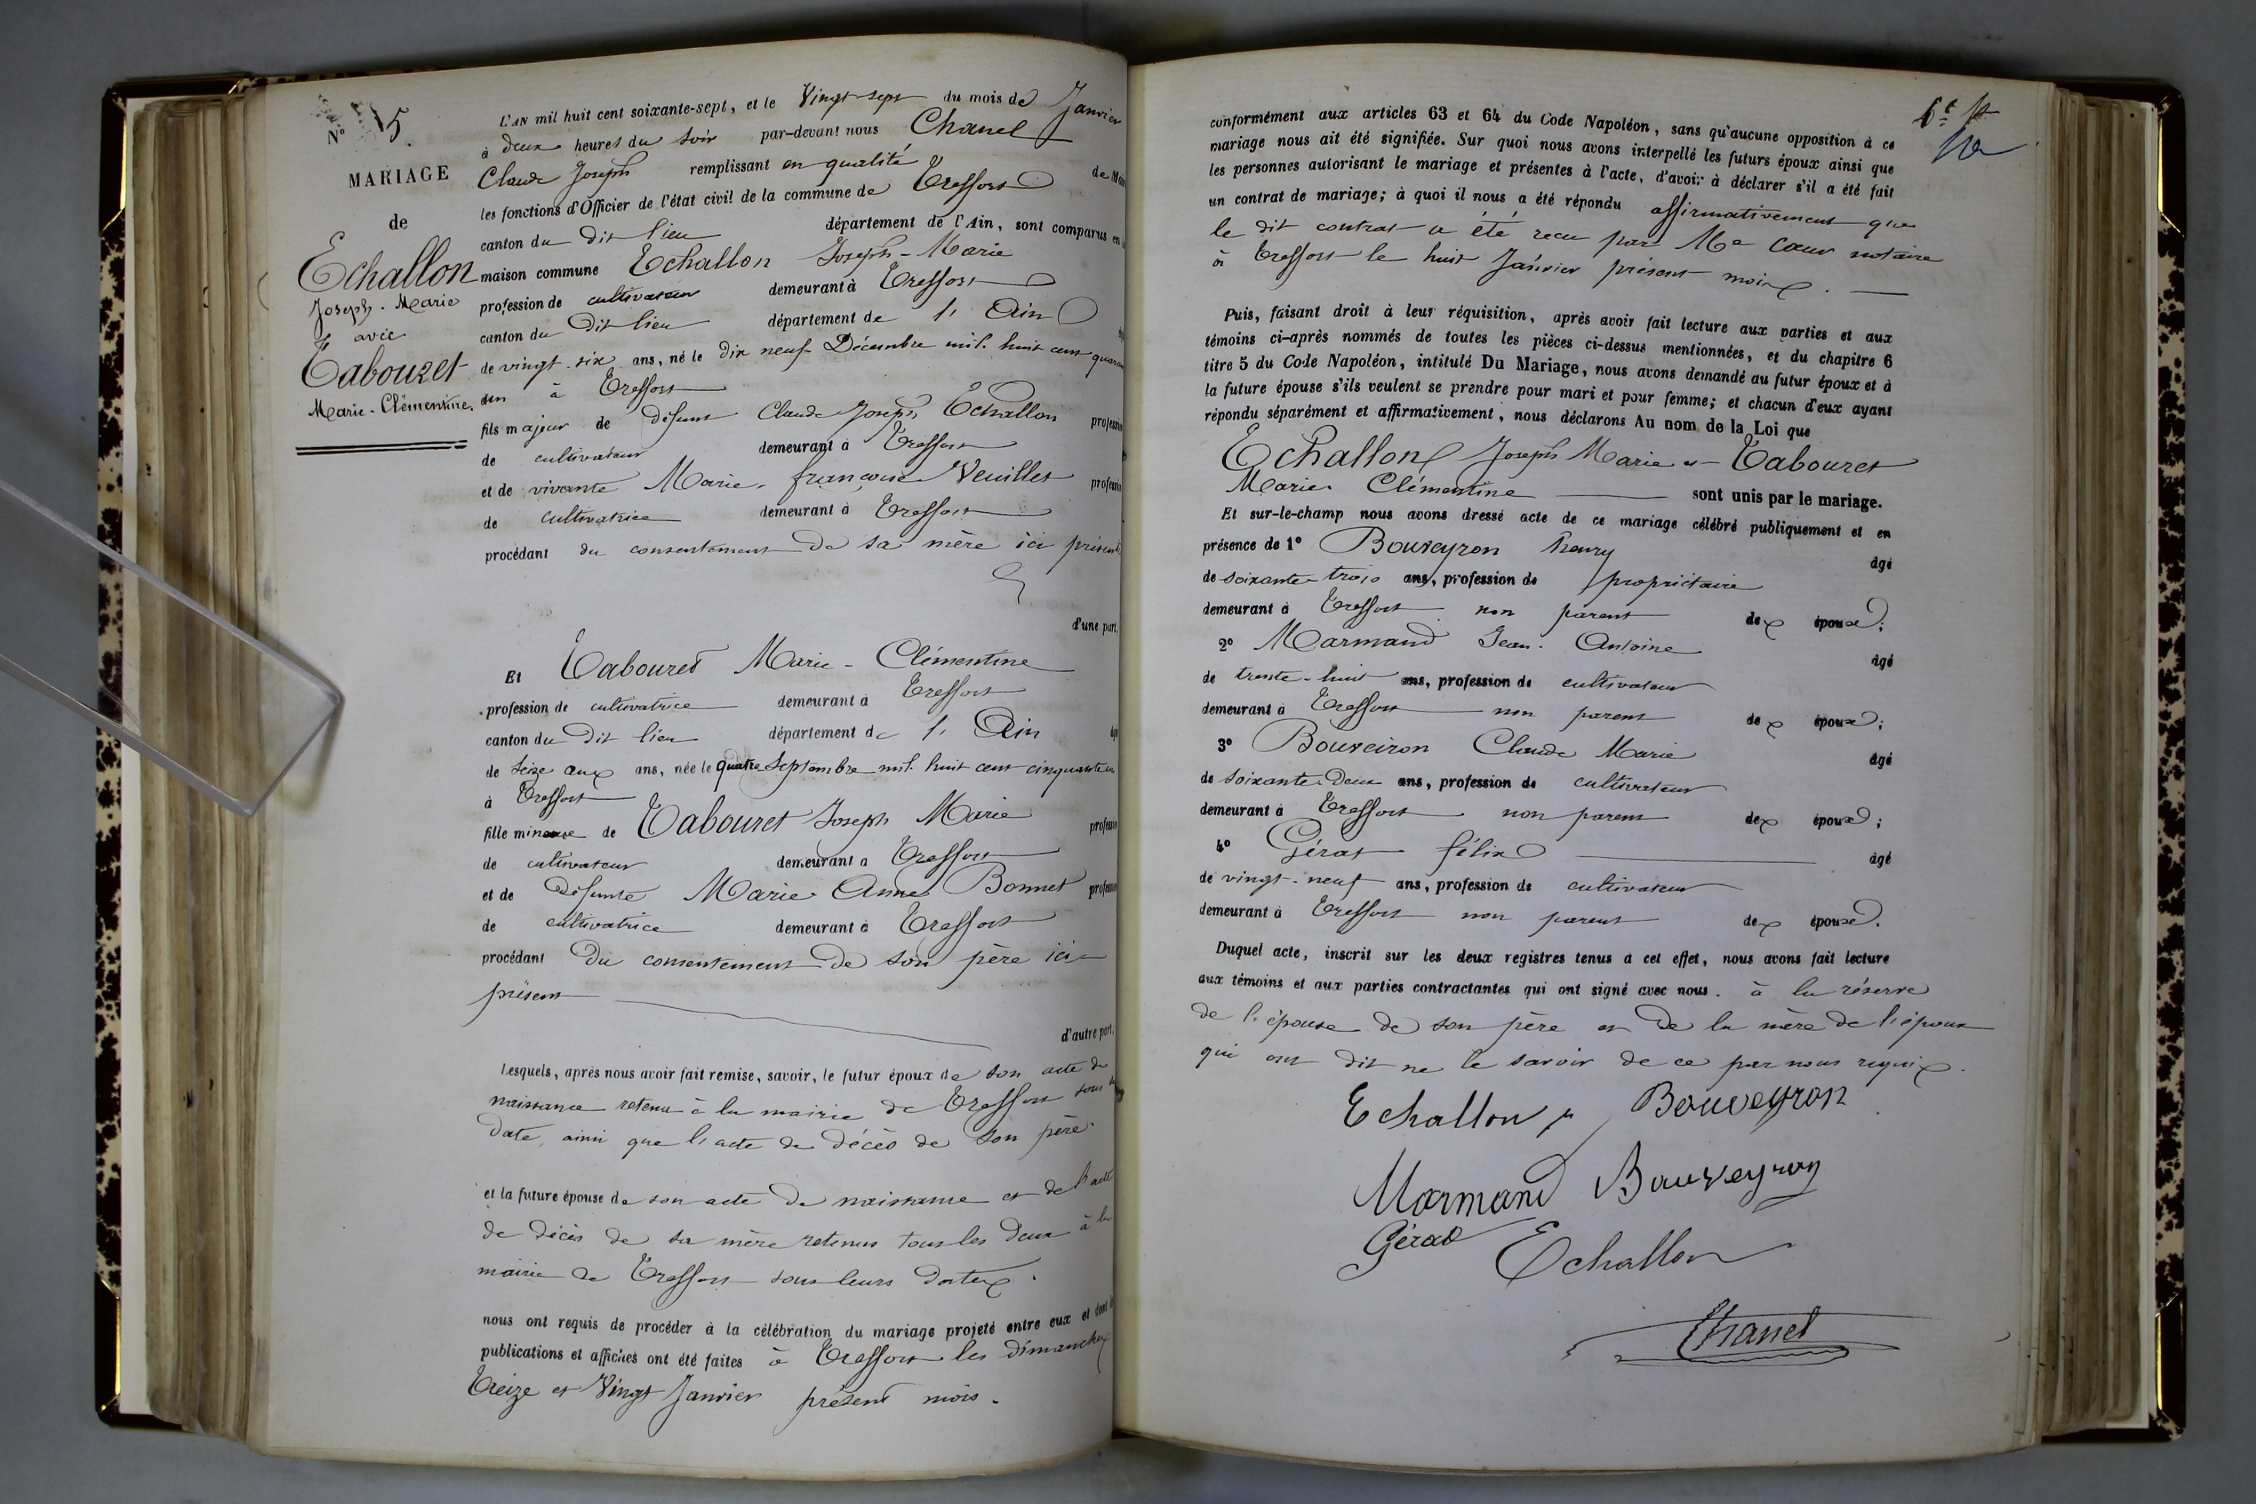 N° 5.
MARIAGE
de
Echallon
Joseph-Marie
avec
Tabouret
Marie-Clémentine.
L'AN mil huit cent soixante-sept, et le Vingt-sept du mois de Janvier
à deux heures du soir par-devant nous Chanel
Claude Joseph remplissant en qualité de Maire
les fonctions d'Officier de l'état civil de la commune de Treffort
canton du dit lieu département de l'Ain, sont comparus en
maison commune Echallon Joseph-Marie
profession de cultivateur demeurant à Treffort
canton du Dit lieu département de l'Ain
de vingt-six ans, né le dix neuf Décembre mil huit cent quarante
à Treffort
fils majeur de défunt Claude Joseph Echallon profession
de cultivateur demeurant à Treffort
et de vivante Marie-françoise Veuillet profession
de cultivatrice demeurant à Treffort
procédant du consentement de sa mère ici présente
d'une part,
Et Tabouret Marie-Clémentine
profession de cultivatrice demeurant à Treffort
canton du Dit lieu département de l'Ain
de Seize ans, née le quatre Septembre mil huit cent cinquante
à Treffort
fille mineure de Tabouret Joseph Marie profession
de cultivateur demeurant à Treffort
et de défunte Marie Anne Bonnet profession
de cultivatrice demeurant à Treffort
procédant du consentement de son père ici
présent
d'autre part,
Lesquels, après nous avoir fait remise, savoir, le futur époux de son acte de
naissance retenu à la mairie de Treffort sous sa
date, ainsi que l'acte de décès de son père.
et la future épouse de son acte de naissance et de l'acte
de décès de sa mère retenus tous les deux à la
mairie de Treffort sous leurs dates.
nous ont requis de procéder à la célébration du mariage projeté entre eux et dont les
publications et affiches ont été faites à Treffort les dimanches
Treize et Vingt Janvier présent mois.
6e
conformément aux articles 63 et 64 du Code Napoléon, sans qu'aucune opposition à ce
mariage nous ait été signifiée. Sur quoi nous avons interpellé les futurs époux ainsi que
les personnes autorisant le mariage et présentes à l'acte, d'avoir à déclarer s'il a été fait
un contrat de mariage; à quoi il nous a été répondu affirmativement que
le dit contrat a été reçu par Me Cœur notaire
à Treffort le huit Janvier présent mois.
Puis, faisant droit à leur réquisition, après avoir fait lecture aux parties et aux
témoins ci-après nommés de toutes les pièces ci-dessus mentionnées, et du chapitre 6
titre 5 du Code Napoléon, intitulé Du Mariage, nous avons demandé au futur époux et à
la future épouse s'ils veulent se prendre pour mari et pour femme; et chacun d'eux ayant
répondu séparément et affirmativement, nous déclarons Au nom de la Loi que
Echallon Joseph Marie et Tabouret
Marie Clémentine sont unis par le mariage.
Et sur-le-champ nous avons dressé acte de ce mariage célébré publiquement et en
présence de 1° Bouveyron henry âgé
de soixante-trois ans, profession de propriétaire
demeurant à Treffort non parent des époux;
2° Marmand Jean-Antoine âgé
de trente-huit ans, profession de cultivateur
demeurant à Treffort non parent des époux;
3° Bouveiron Claude Marie âgé
de soixante-Deux ans, profession de cultivateur
demeurant à Treffort non parent des époux;
4° Gérat félix âgé
de vingt-neuf ans, profession de cultivateur
demeurant à Treffort non parent des époux.
Duquel acte, inscrit sur les deux registres tenus à cet effet, nous avons fait lecture
aux témoins et aux parties contractantes qui ont signé avec nous. à la réserve
de l'épouse de son père et de la mère de l'époux
qui ont dit ne le savoir de ce par nous requis.
Echallon Bouveyron
Marmand Bouveyron
Gérat Echallon
Chanel